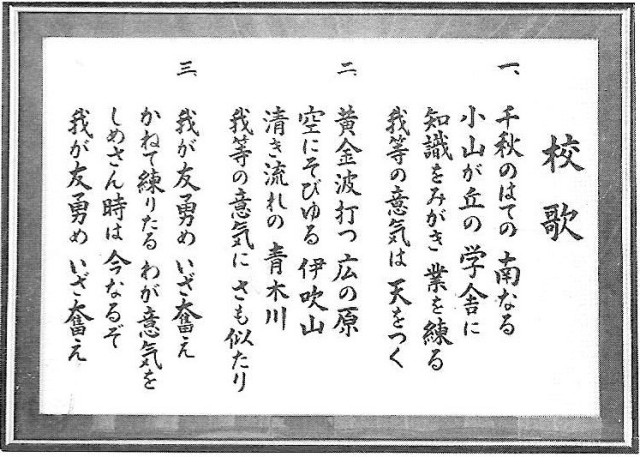 校歌
一、
千秋のはての 南なる
小山が丘の 学舎に
知識をみがき 業を練る
我等の意気は 天をつく
二、
黄金波打つ 広の原
空にそびゆる 伊吹山
清き流れの 青木川
我等の意気に さも似たり
三、
我が友勇め いざ奮え
かねて練りたる わが意気を
しめさん時は 今なるぞ
我が友勇め いざ奮え